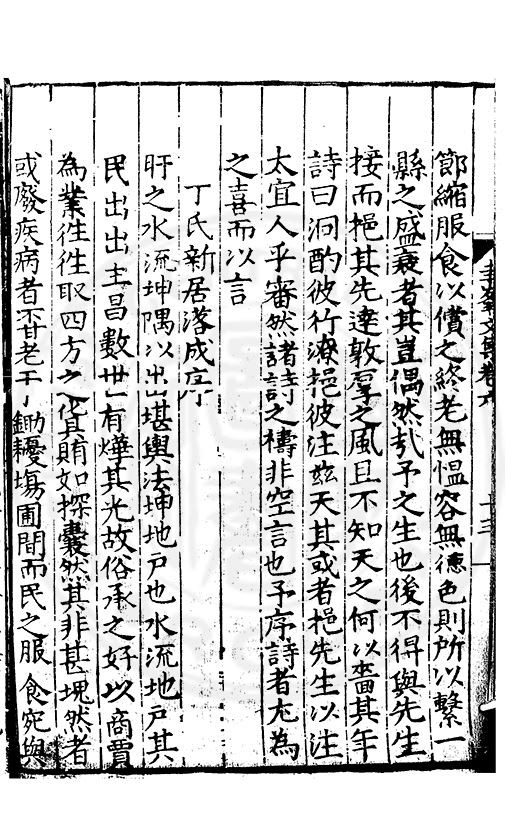 節縮服食以償之終老無愠容無德色則所以繫一
縣之盛衰者其豈偶然㢤予之生也後不得與先生
接而挹其先達敦厚之風且不知天之何以嗇其年
詩曰泂酌彼行潦挹彼注兹天其或者挹先生以注
太宜人乎審然諸詩之禱非空言也予序詩者尤為
之喜而以言
丁氏新居落成序
盱之水流坤隅以出堪輿法坤地戸也水流地戸其
民出出主昌數世有燁其光故俗承之好以商賈
為業往往取四方之化其賄如探囊然其非甚塊然者
或廢疾病者不甘老于鋤耰塲圃間而民之服食宛與
文集卷六
十三